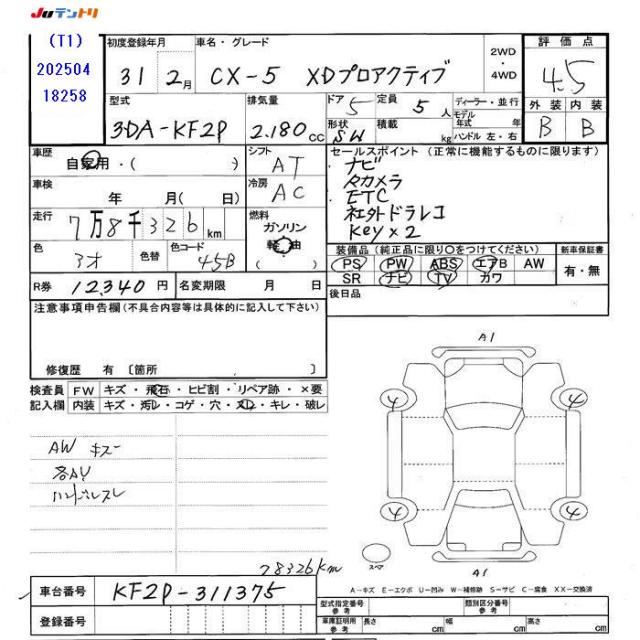 JUテントリ
(T1)
202504
18258
初度登録年月
31 2月
車名・グレード
CX-5 XDプロアクティブ
2WD
・
4WD
評価点
4.5
外装 内装
B B
型式
3DA-KF2P
排気量
2.180 CC
ドア 5
形状 SW
定員 5人
積載 kg
ディーラー・並行
モデル年式 年式
ハンドル 左・右
車歴
自家用・( )
シフト
AT
車検
年 月( 日)
冷房
AC
走行
7万8千326km
燃料
ガソリン
軽油
( )
色
色替
色コード
45B
R券 12,340円
名変期限 月 日
セールスポイント (正常に機能するものに限ります)
ナビ
カメラ
ETC
社外ドラレコ
Key×2
装備品 (純正品に限り○をつけてください)
PS PW ABS エアB AW
SR ナビ TV カワ
新車保証書
有・無
後日品
注意事項申告欄 (不具合内容等は具体的に記入して下さい)
修復歴 有 〔箇所 〕
検査員記入欄
FW キズ・飛石・ヒビ割・リペア跡・×要
内装 キズ・汚レ・コゲ・穴・スレ・キレ・破レ
AW キズ
ハンドルスレ
78326km
A1
4 4
4 4
スペア
A1
車台番号 KF2P-311375
登録番号
A-キズ E-エクボ U-凹み W-補修跡 S-サビ C-腐食 XX-交換済
型式指定番号 参考
類別区分番号 参考
車庫証明用 参考
長さ cm 幅 cm 高さ cm